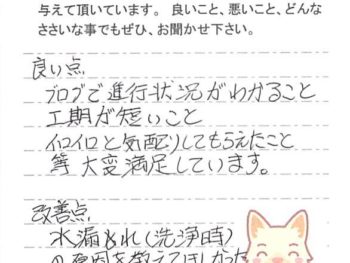 与えて頂いています。良いこと、悪いこと、どんな
ささいな事でもぜひ、お聞かせ下さい。
良い点
ブログで進行状況がわかること
工期が短いこと
イロイロと気配りしてもらえたこと
等 大変満足しています。
改善点
水漏もれ(洗浄時)
の原因を教えてほしかった